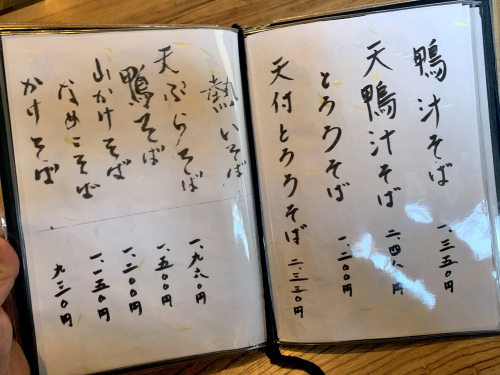 鴨汁そば 一、三五〇円
天鴨汁そば 二、四八〇円
とろろそば 一、二〇〇円
天付とろろそば 二、三三〇円
熱いそば
天ぷらそば 一、九八〇円
鴨そば 一、五〇〇円
山かけそば 一、二〇〇円
なめこそば 一、一五〇円
かけそば 九三〇円